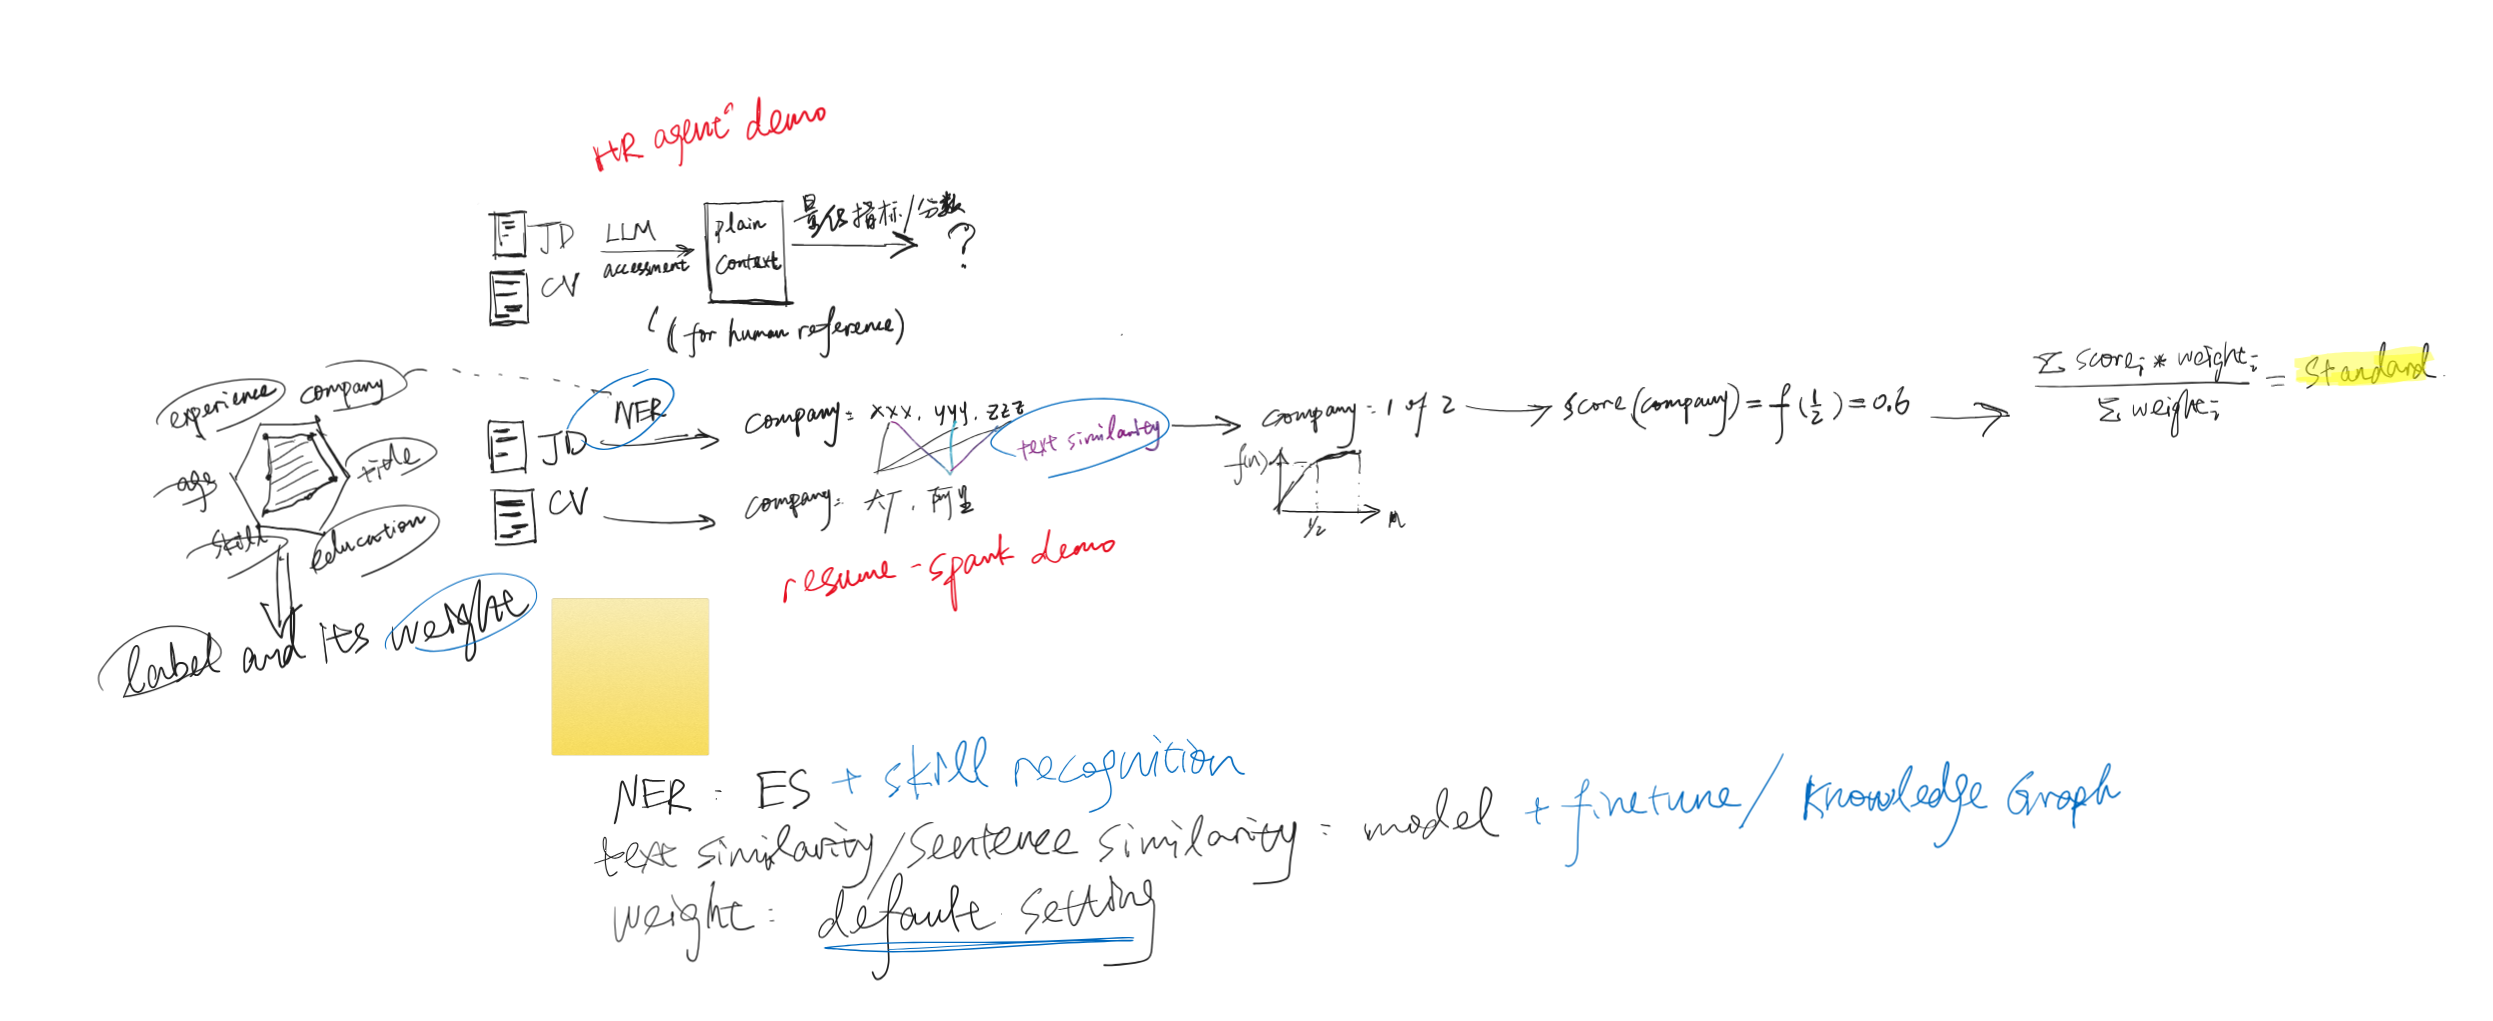 HR agent" demo
JD
LLM
accessment
plain
context
量化指标/分数
?
CV
(for human reference)
experience
company
age
title
skill
education
label and its weight
JD
NER
company: xxx, yyy, zzz
text similarity
CV
company:
company: 1 of 2
score(company) = f(1/2) = 0.6
f(n)
1/2
n
Σ scoreᵢ * weightᵢ
Σ weightᵢ
= standard
resume-spark demo
NER: ES + skill recognition
text similarity/sentence similarity: model + finetune/Knowledge Graph
weight: default setting